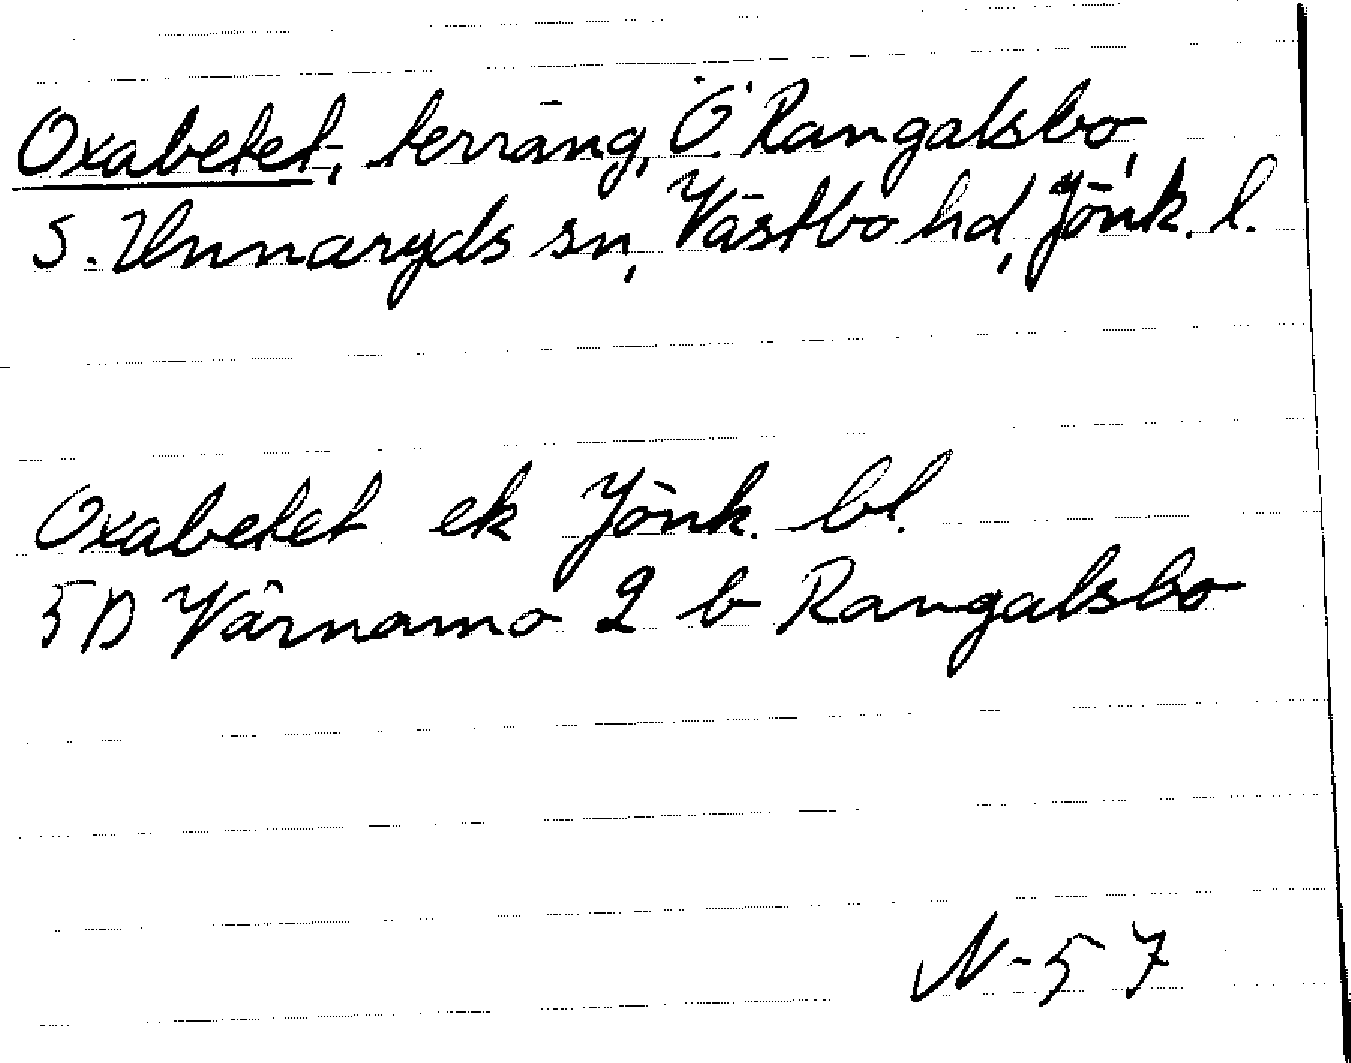 Oxabetet, terräng, Ö. Rangalsbo,
S. Unnaryds sn, Västbo hd, Jönk. l.
Oxabetet ek Jönk. bl.
5D Värnamo 2 b Rangalsbo
N-57